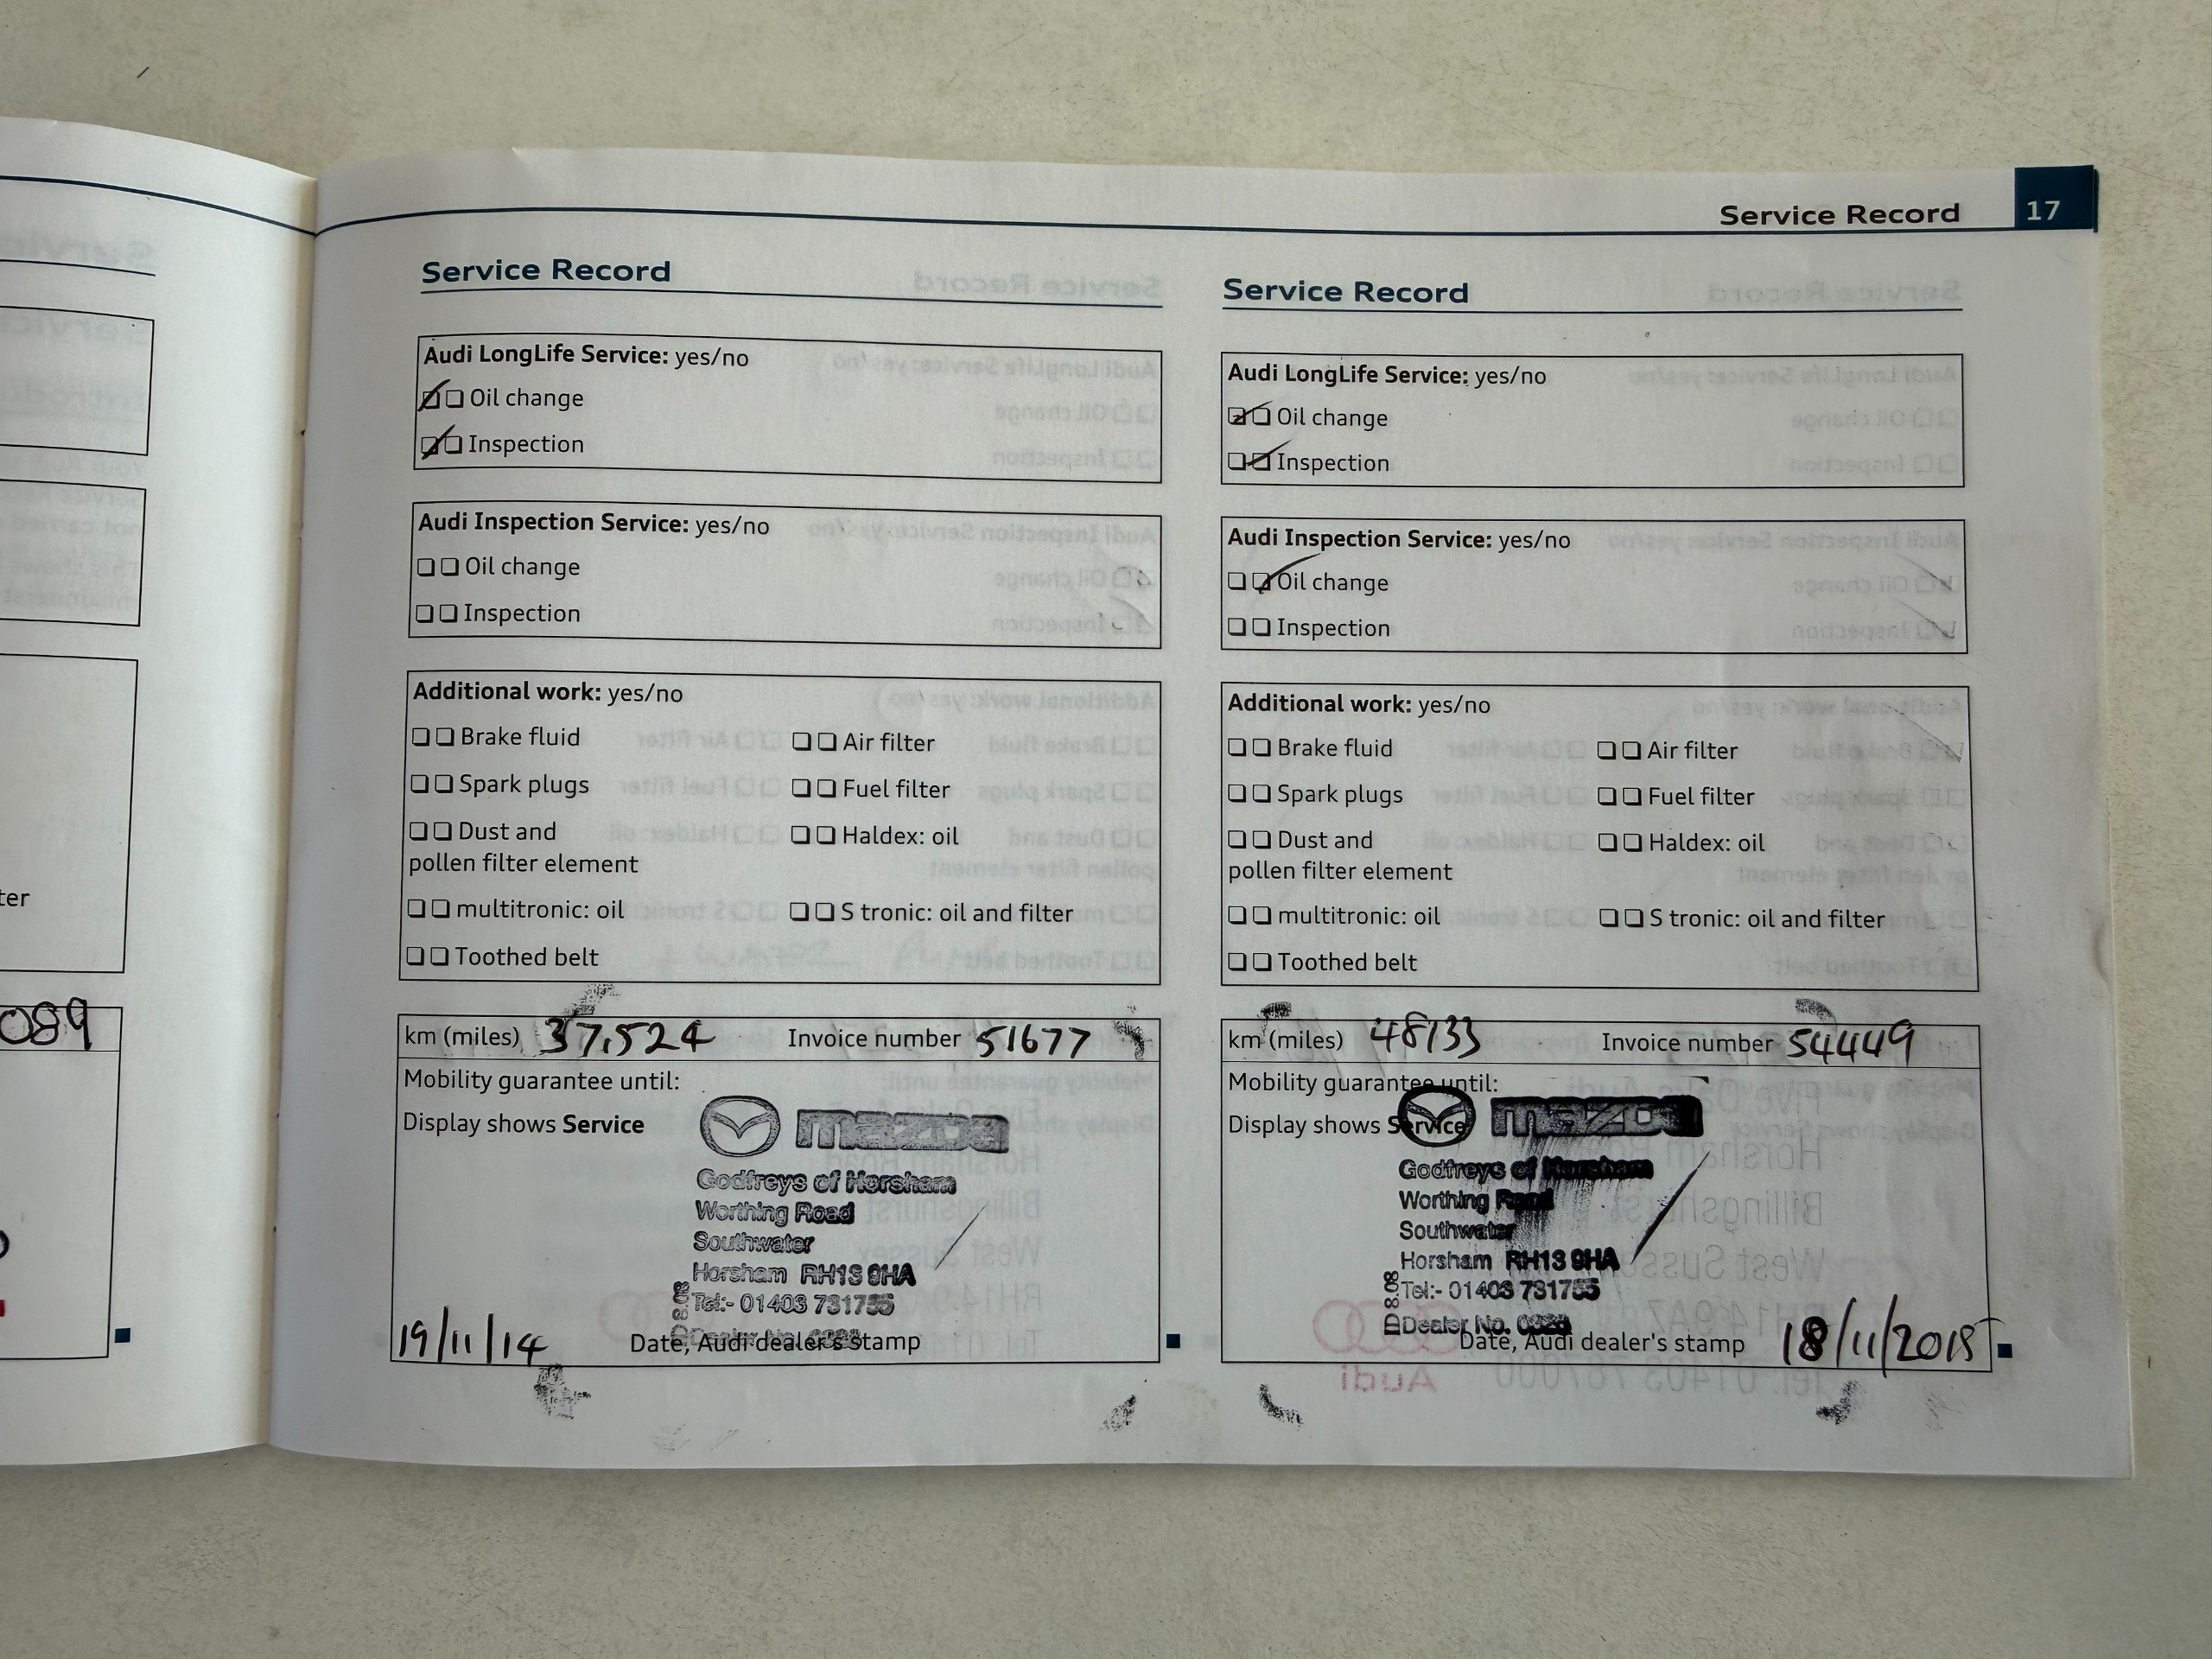 Service Record 17
Service Record
Audi LongLife Service: yes/no
Oil change
Inspection
Audi Inspection Service: yes/no
Oil change
Inspection
Additional work: yes/no
Brake fluid Air filter
Spark plugs Fuel filter
Dust and Haldex: oil
pollen filter element
multitronic: oil S tronic: oil and filter
Toothed belt
km (miles) 37,524 Invoice number 51677
Mobility guarantee until:
Display shows Service
mazda
Godfreys of Horsham
Worthing Road
Southwater
Horsham RH13 9HA
Tel:- 01403 731755
Dealer No.
19/11/14 Date, Audi dealer's stamp
Service Record
Audi LongLife Service: yes/no
Oil change
Inspection
Audi Inspection Service: yes/no
Oil change
Inspection
Additional work: yes/no
Brake fluid Air filter
Spark plugs Fuel filter
Dust and Haldex: oil
pollen filter element
multitronic: oil S tronic: oil and filter
Toothed belt
km (miles) 48133 Invoice number 54449
Mobility guarantee until:
Display shows Service
mazda
Godfreys of Horsham
Worthing Road
Southwater
Horsham RH13 9HA
Tel:- 01403 731755
Dealer No.
Date, Audi dealer's stamp 18/11/2015
ter
089